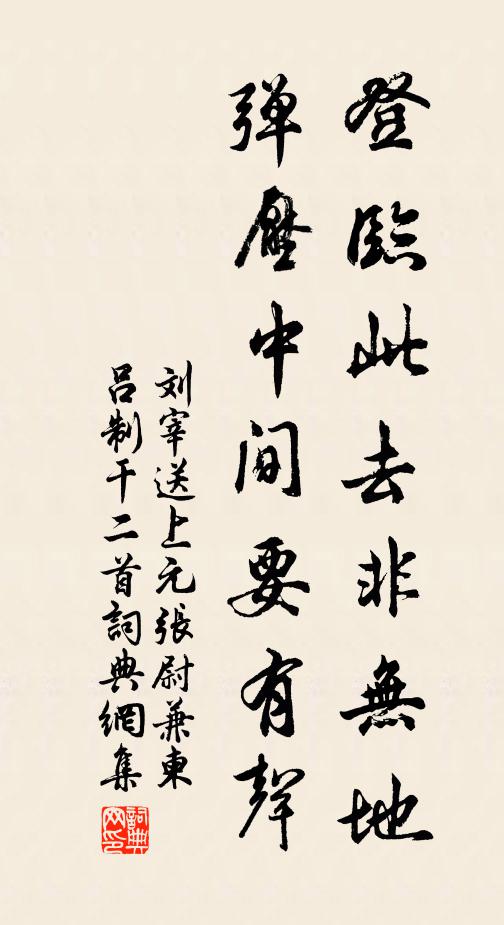 登臨此去非無地
弹壓中间要有聲
刘宰送上元張尉兼東
吕制干二首詞典網集
詞典
网印